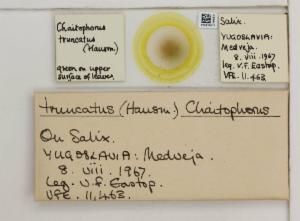 Chaitophorus
truncatus
(Hausm)
green on upper
surface of leaves.
Salix.
YUGOSLAVIA:
Medveja.
8. viii. 1967
leg. V.F. Eastop.
VFE. 11,463
truncatus (Hausm) Chaitophorus
On Salix.
YUGOSLAVIA: Medveja.
8. viii. 1967.
Leg. V.F. Eastop.
VFE. 11,463.